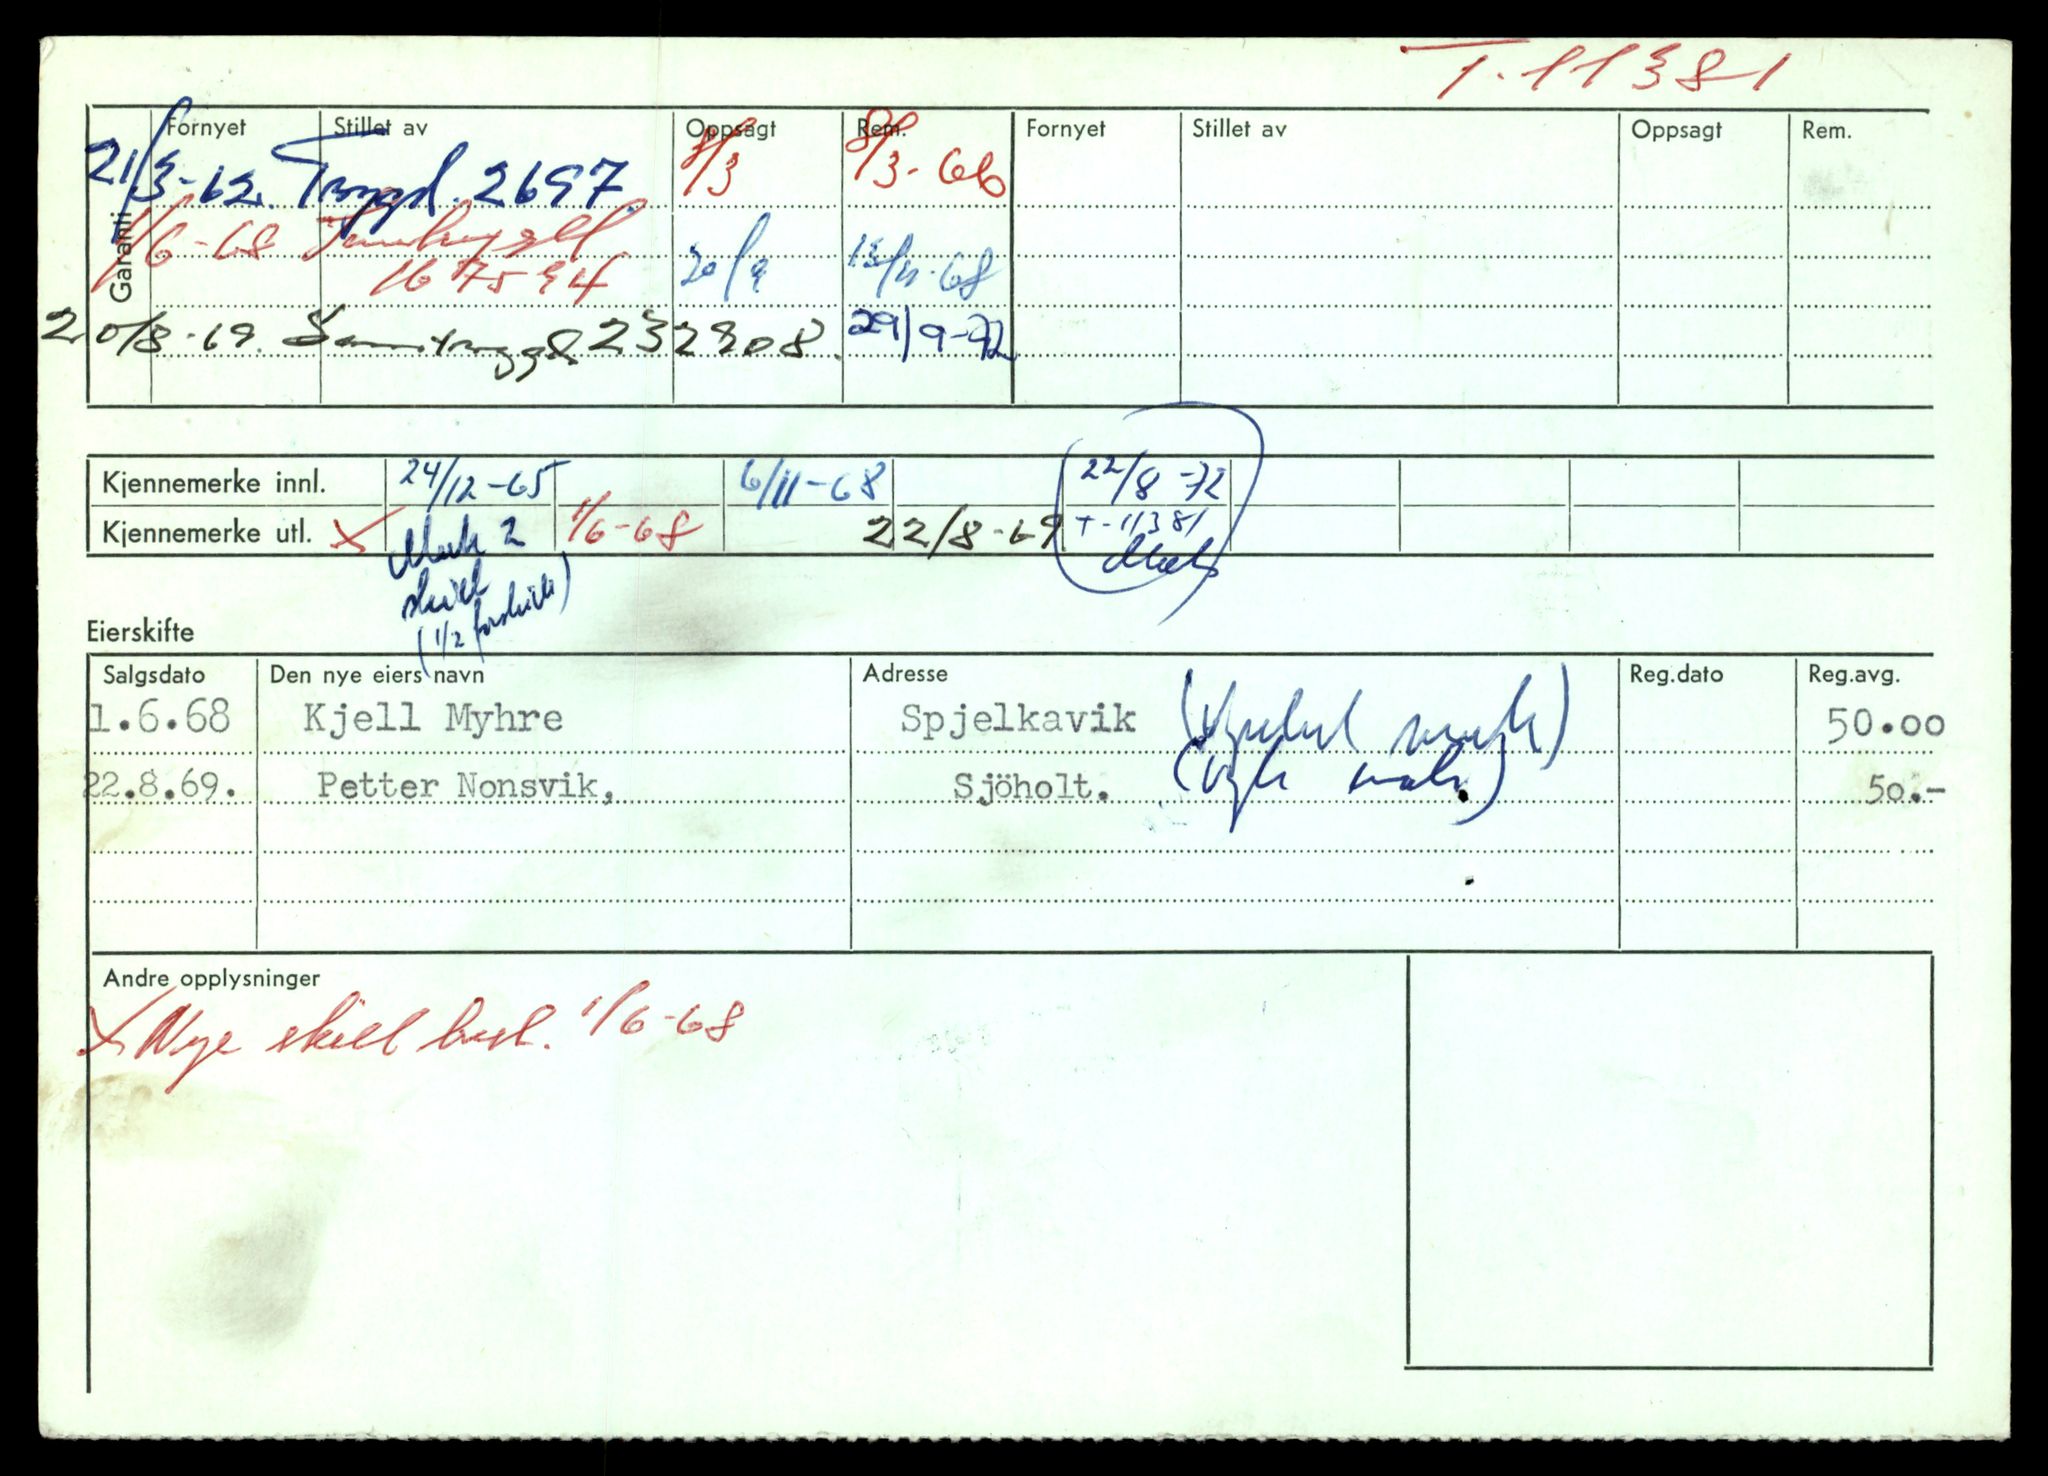 T. 11381
Fornyet Stillet av Oppsagt Rem. Fornyet Stillet av Oppsagt Rem.
Garanti
21/3-62. Trygd. 2697. 8/3 8/3-66
1/6-68 Samtrygd
167594 13/11-68
20/8-69. Samtrygd 232908. 29/9-72
Kjennemerke innl. 24/12-65 6/11-68 22/8-72
Kjennemerke utl. X 1/6-68 22/8-69 T-11381
Mark 2
skilt
(1/2
Eierskifte
Salgsdato Den nye eiers navn Adresse Reg.dato Reg.avg.
1.6.68 Kjell Myhre Spjelkavik 50.00
22.8.69. Petter Nonsvik, Sjöholt. 50.-
Andre opplysninger
X Nye skilt best. 1/6-68